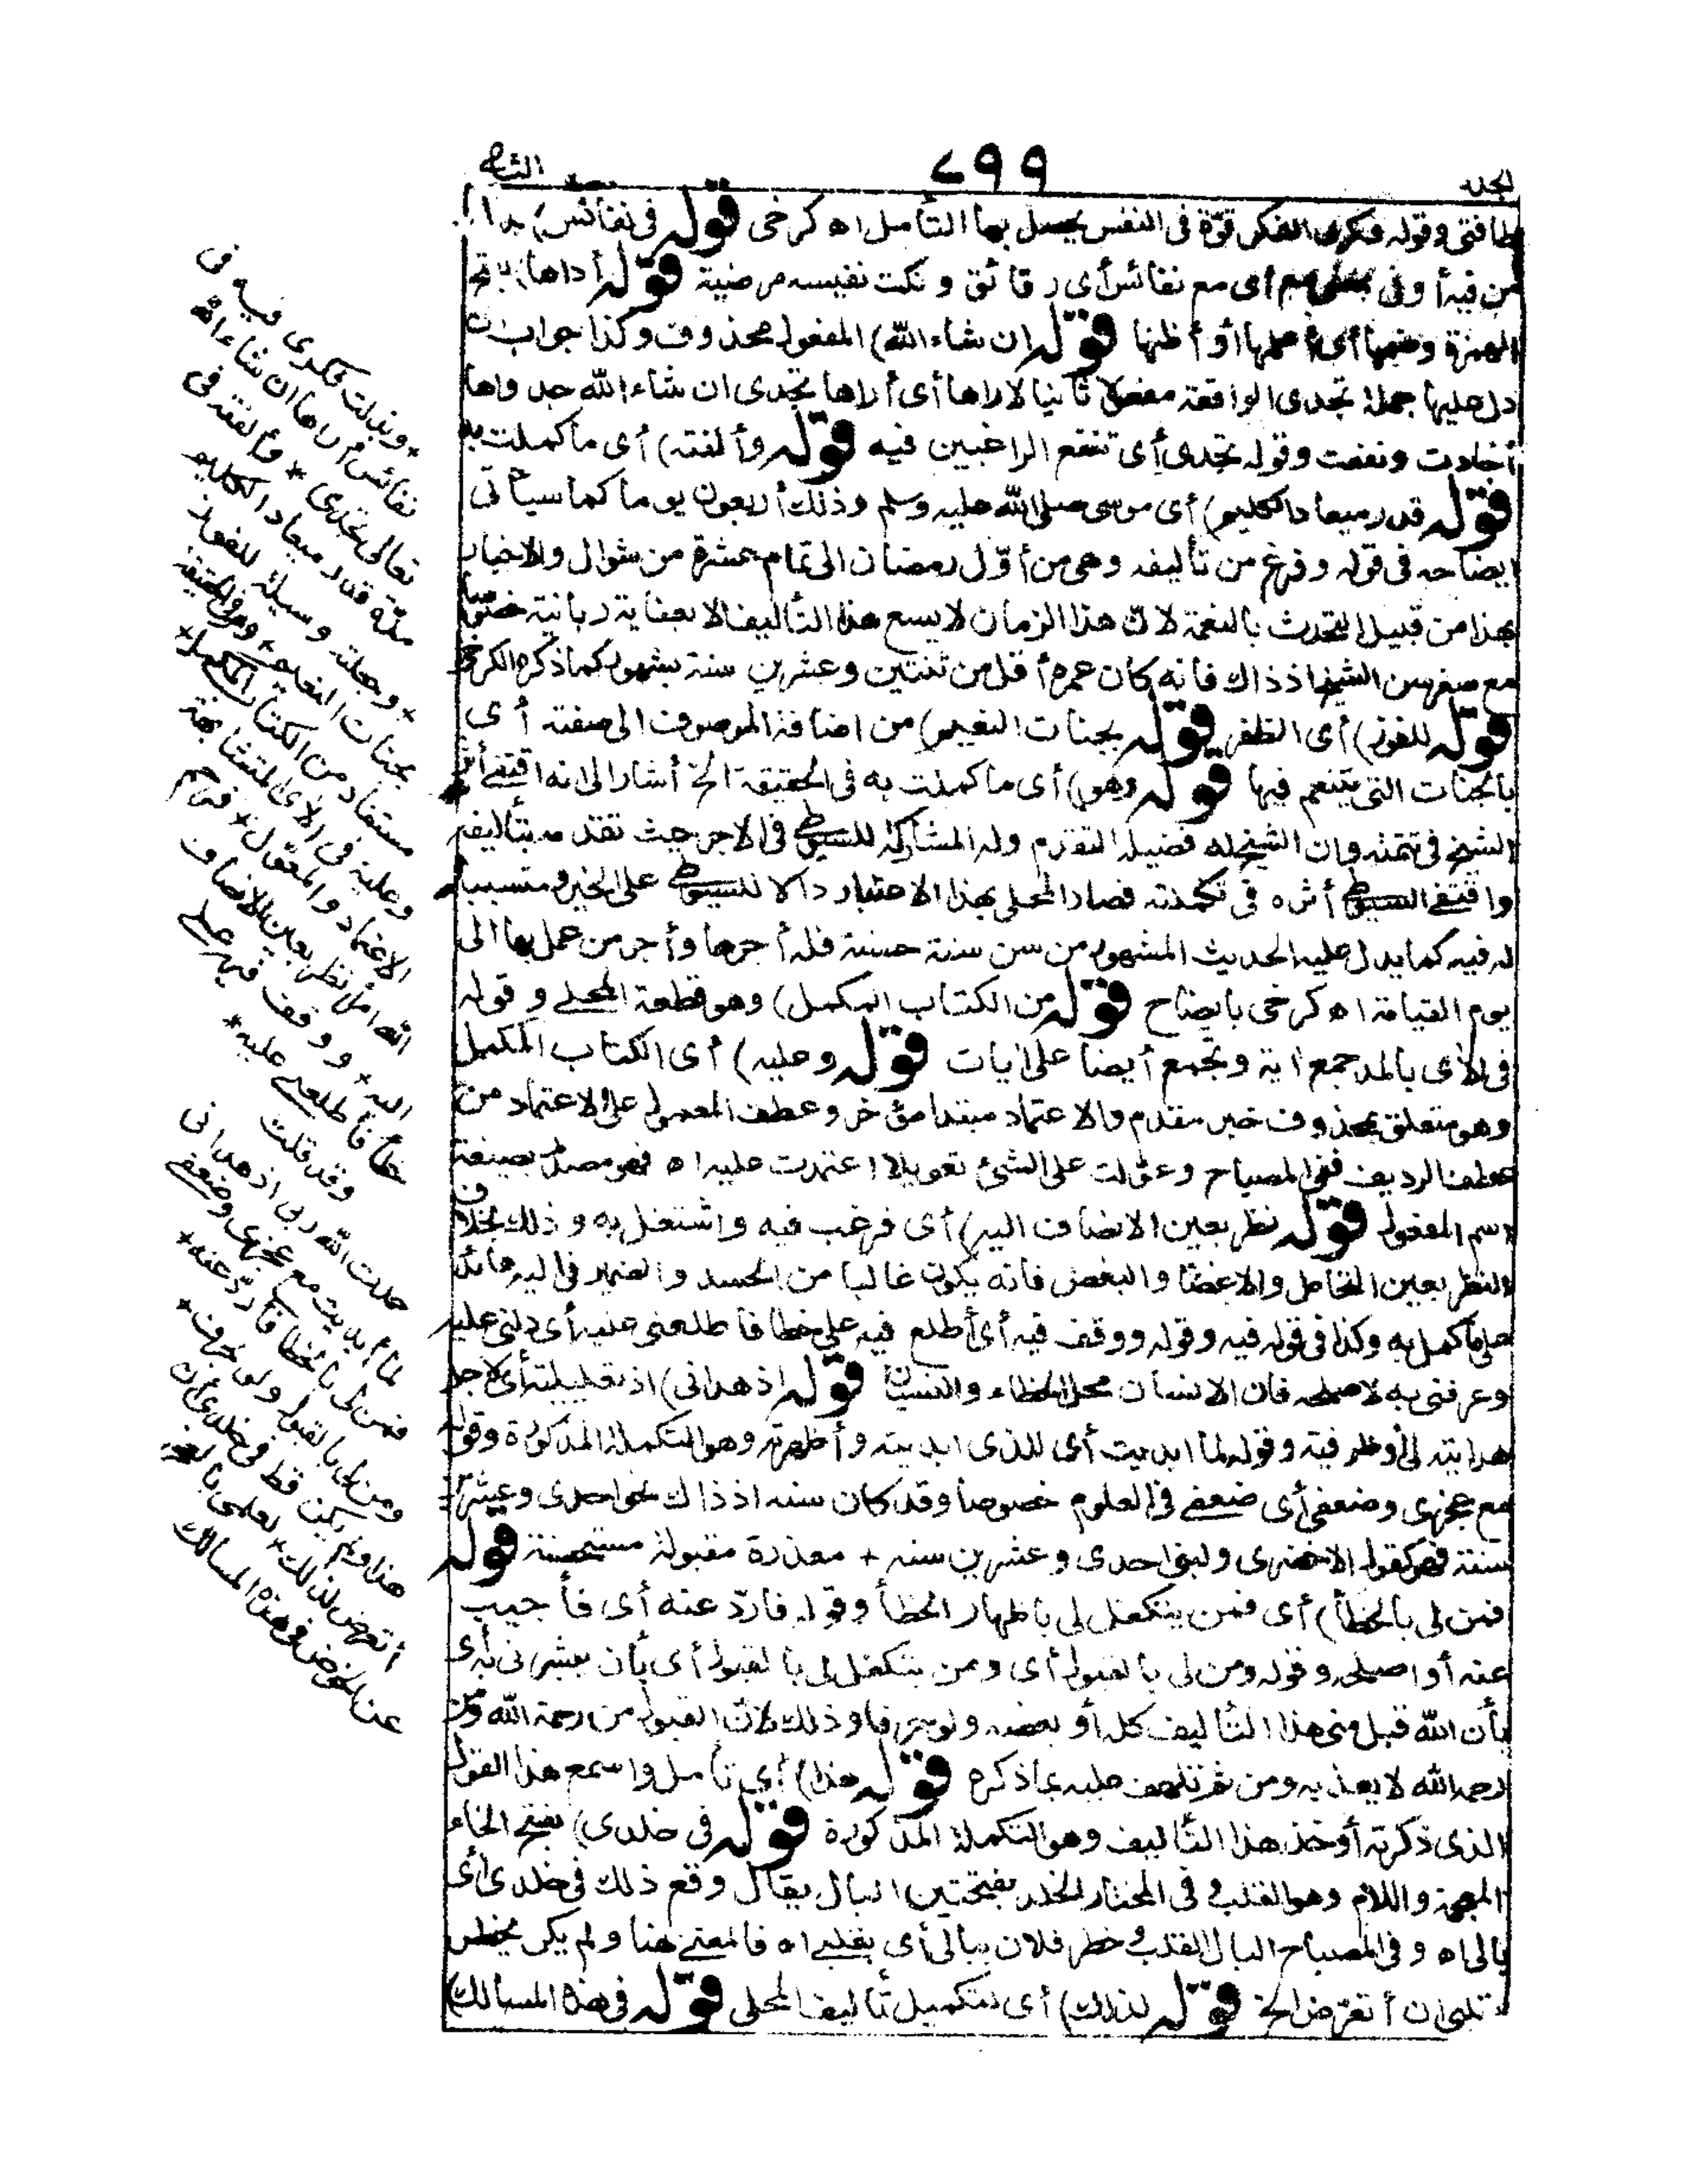 الجلد
٦٩٩
الثانى
طاقتى وقوله فكرى الفكر قوّة فى النفس يحصل بها التأمل اه كرخى قوله فى نفائس) بدل
من فيه أو فى بمعنى مع أى مع نفائس أى رقائق ونكت نفيسه مرضية قوله أراها) بفتح
الهمزة وضمها أى أعلمها أو أظنها قوله ان شاء الله) المفعول محذوف وكذا جواب ان
دل عليها جملة تجدى الواقعة مفعولا ثانيا لاراها أى أراها تجدى ان شاء الله جدواها
أفادت ونفعت وقوله تجدى أى تنفع الراغبين فيه قوله وألفته) أى ما كملت به
قوله قدر ميعاد الكليم) أى موسى صلى الله عليه وسلم وذلك أربعون يوما كما سيأتى
ايضاحه فى قوله وفرغ من تأليفه وهى من أوّل رمضان الى تمام عشرة من شوال والاخبار
بهذا من قبيل التحدث بالنعمة لانّ هذا الزمان لا يسع هذا التأليف الا بعناية ربانية خصوصا
مع صغر سن الشيخ اذ ذاك فانه كان عمره أقل من ثنتين وعشرين سنة بشهور كما ذكره الكرخى
قوله للفوز) أى الظفر قوله بجنات النعيم) من اضافة الموصوف الى صفته أى
بالجنات التى يتنعم فيها قوله وهو) أى ما كملت به فى الحقيقة الخ أشار الى انه اقتفى أثر
الشيخ فى تتمته وان الشيخ له فضيلة التقدّم وله المشاركة للسيوطى فى الاجر حيث تقدّمه بتأليفه
واقتفى السيوطى أثره فى تكملته فصار المحلى بهذا الاعتبار دالا للسيوطى على الخير ومتسببا
له فيه كما يدل عليه الحديث المشهور من سن سنة حسنة فله أجرها وأجر من عمل بها الى
يوم القيامة اه كرخى بايضاح قوله من الكتاب المكمل) وهو قطعة المحلى وقوله
فى الآى بالمد جمع اية وتجمع أيضا على ايات قوله وعليه) أى الكتاب المكمل
وهو متعلق بمحذوف خبر مقدم والاعتماد مبتدا مؤخر وعطف المعول على الاعتماد من
عطف الرديف ففى المصباح وعوّلت على الشئ تعويلا اعتمدت عليه اه فهو مصدر بصيغة
اسم المفعول قوله نظر بعين الانصاف اليه) أى فرغب فيه واشتغل به وذلك بخلاف
النظر بعين التحامل والاغضا والبغض فانه يكون غالبا من الحسد والضمير فى اليه عائد
على ما كمل به وكذا فى قوله فيه وقوله ووقف فيه أى أطلع فيه على خطا فأطلعنى عليه أى دلنى عليه
وعرفنى به لاصلحه فان الانسان محل الخطاء والنسيان قوله اذ هدانى) اذ تعليلية أى لاجل
هدايته لى أو ظرفية وقوله لما ابديت أى للذى ابديته وأظهرته وهو التكملة المذكورة وقوله
مع عجزى وضعفى أى ضعفى فى العلوم خصوصا وقد كان سنه اذ ذاك نحو احدى وعشرين
سنة فهو كقول الاخضرى ولبنى احدى وعشرين سنه + معذرة مقبولة مستحسنة قوله
فمن لى بالخطأ) أى فمن يتكفل لى باظهار الخطأ وقوله فارد عنه أى فأجيب
عنه أو اصلحه وقوله ومن لى بالقبول أى ومن يتكفل لى بالقبول أى بأن يبشرنى بأى
بأن الله قبل منى هذا التأليف كله أو بعضه ولو حرفا وذلك لانّ القبول من رحمة الله ومن
رحمه الله لا يعذبه ومن ثم تلهف عليه بما ذكره قوله هذا) أى تأمل واسمع هذا القول
الذى ذكرته أو خذ هذا التأليف وهو التكملة المذكورة قوله فى خلدى) بفتح الخاء
المعجمة واللام وهو القلب وفى المختار الخلد بفتحتين البال يقال وقع ذلك فى خلدى أى
بالى اه وفى المصباح البال القلب وخطر فلان ببالى أى بقلبى اه فالمعنى هنا ولم يكن يخطر
بقلبى ان أتعرّض الخ قوله لذلك) أى لتكميل تأليف المحلى قوله فى هذه المسالك)
* وبذلت فكرى فيه فى
نفائس أراها ان شاء الله
تعالى تجدى * وألفته فى
مدّة قدر ميعاد الكليم
* وجعلته وسيلة للفوز
بجنات النعيم * وهو فى الحقيقة
مستفاد من الكتاب المكمل *
وعليه فى الآى المتشابهة
الاعتماد والمعوّل * فرحم
الله امرأ نظر بعين الانصاف
اليه * ووقف فيه على
خطأ فأطلعنى عليه *
وقد قلت
حمدت الله ربى اذ هدانى
لما أبديت مع عجزى وضعفى
فمن لى بالخطا فأردّ عنه *
ومن لى بالقبول ولو بحرف *
هذا ولم يكن قط فى خلدى أن
أتعرض لذلك * لعلمى بالعجز
عن الخوض فى هذه المسالك